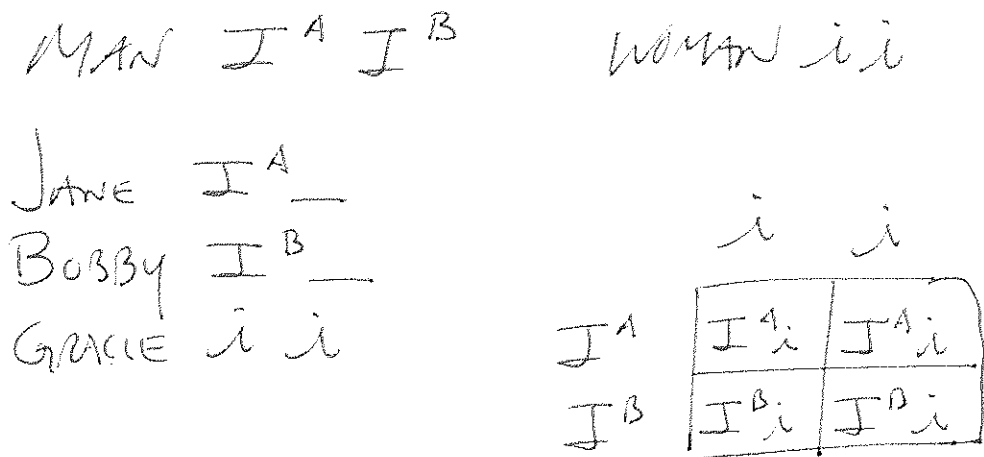 MAN I^A I^B WOMAN i i
JANE I^A _
BOBBY I^B _
GRACIE i i
i i
I^A I^A i I^A i
I^B I^B i I^B i